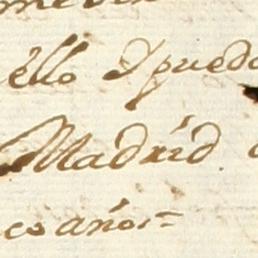 éllo Ypuedo
Madrid.
co años=